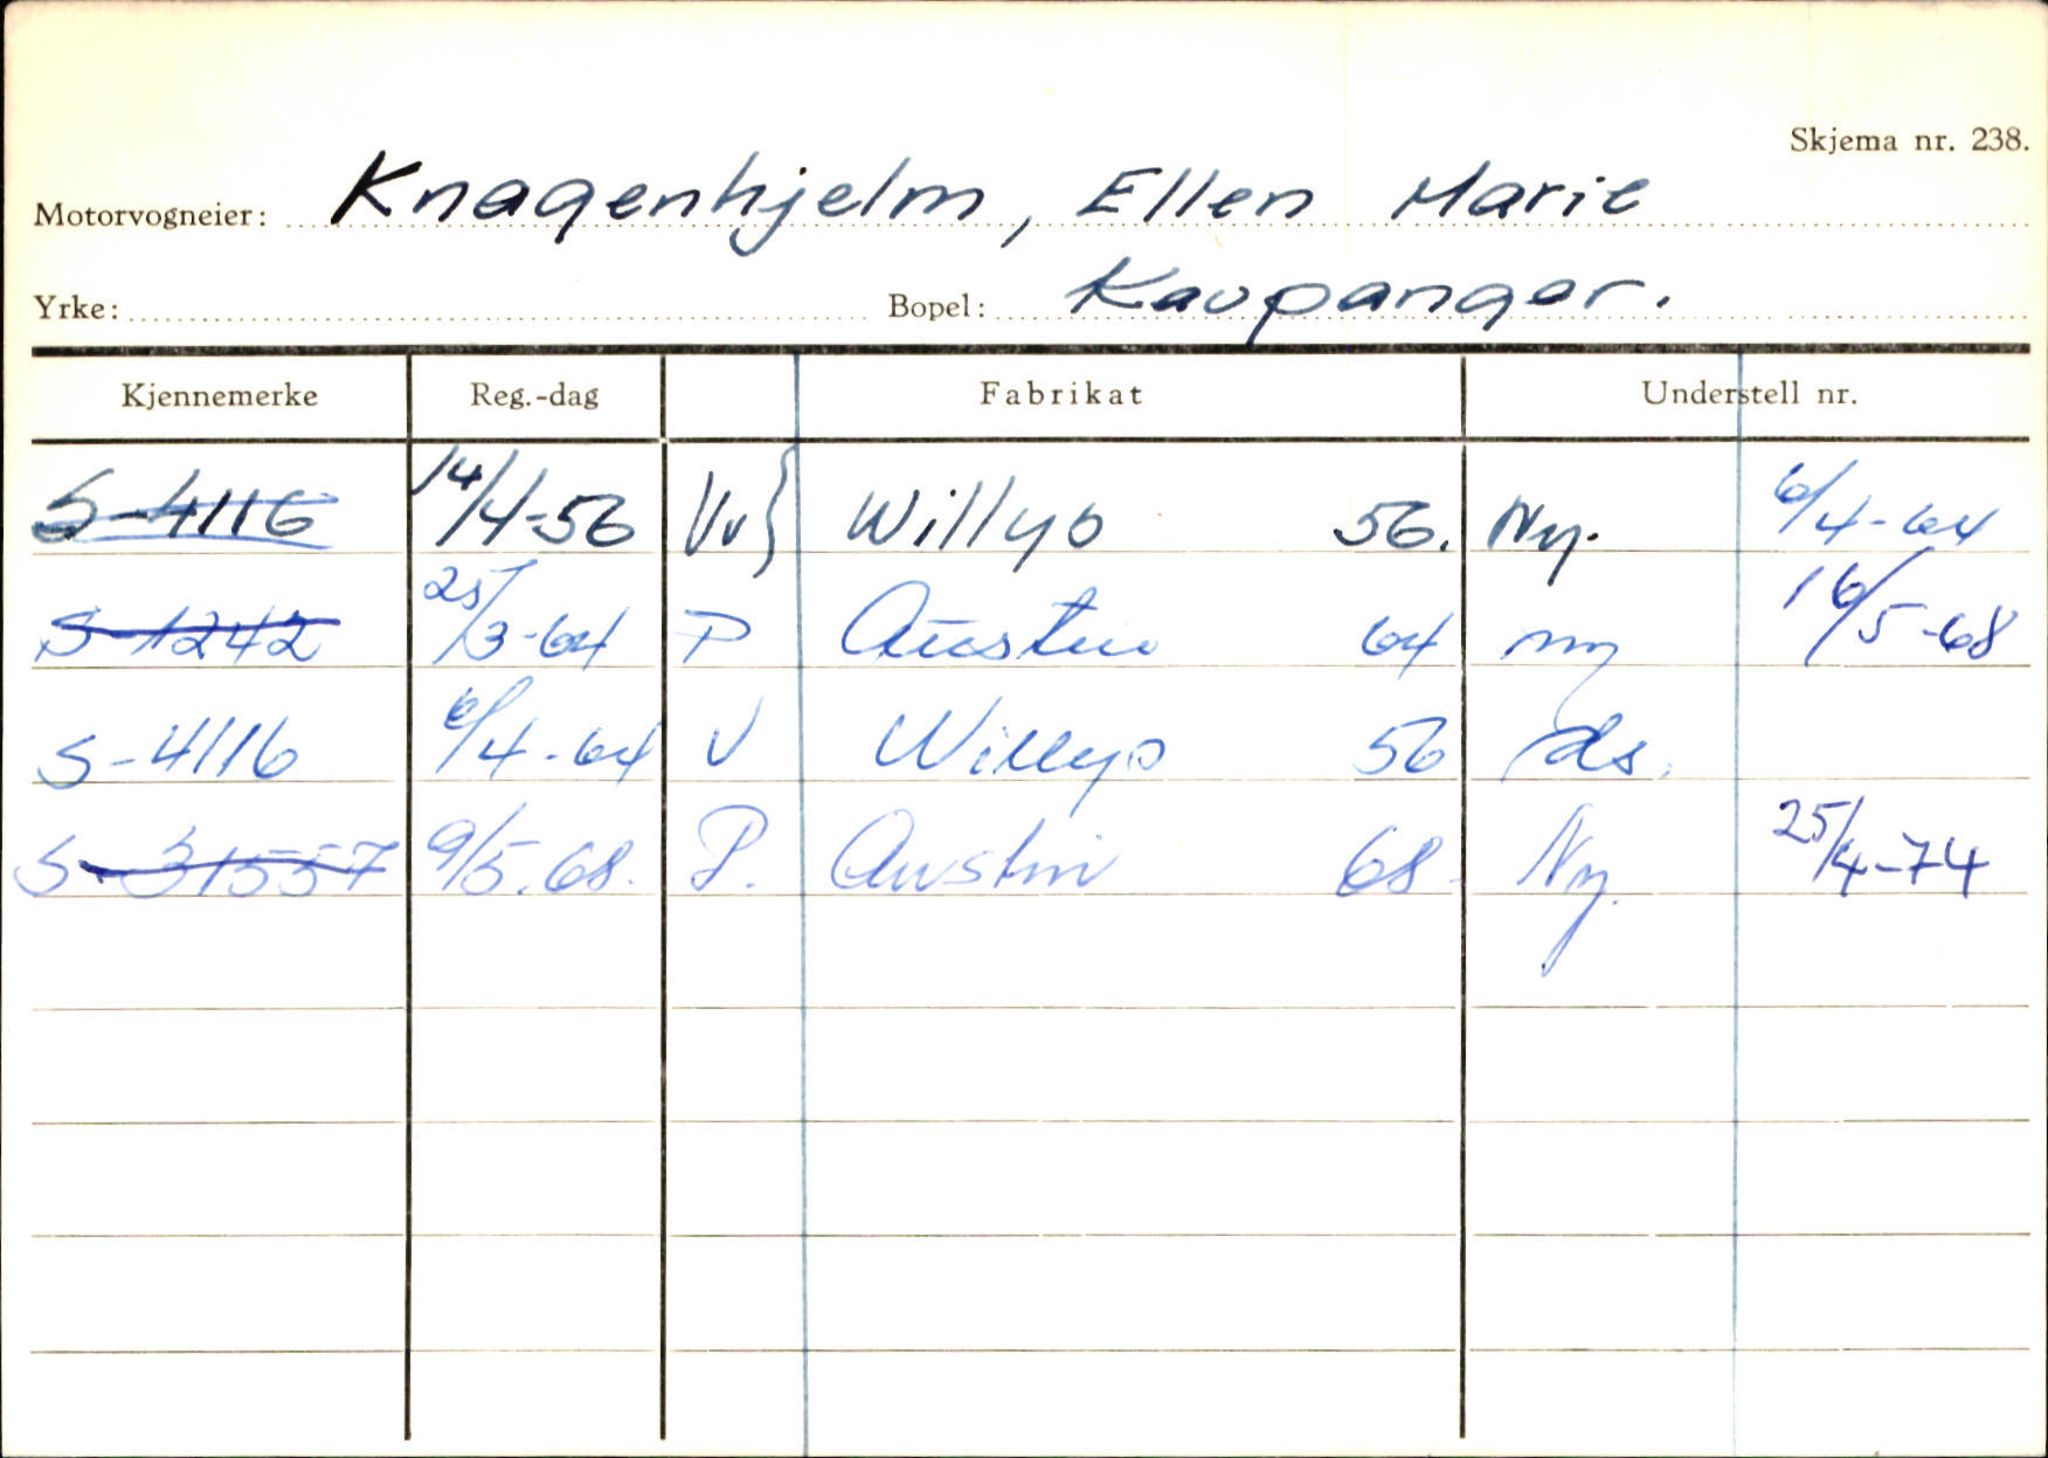 Skjema nr. 238.
Motorvogneier: Knagenhjelm, Ellen Marie
Yrke: Bopel: Kaupanger.
Kjennemerke Reg.-dag Fabrikat Understell nr.
S-4116 14/4-56 Vv} Willys 56. Ny. 6/4-64
S-1242 25/3-64 P Austin 64 ny 16/5-68
S-4116 6/4-64 V Willys 56 ds.
S-31557 9/5.68. P. Austin 68 Ny. 25/4-74